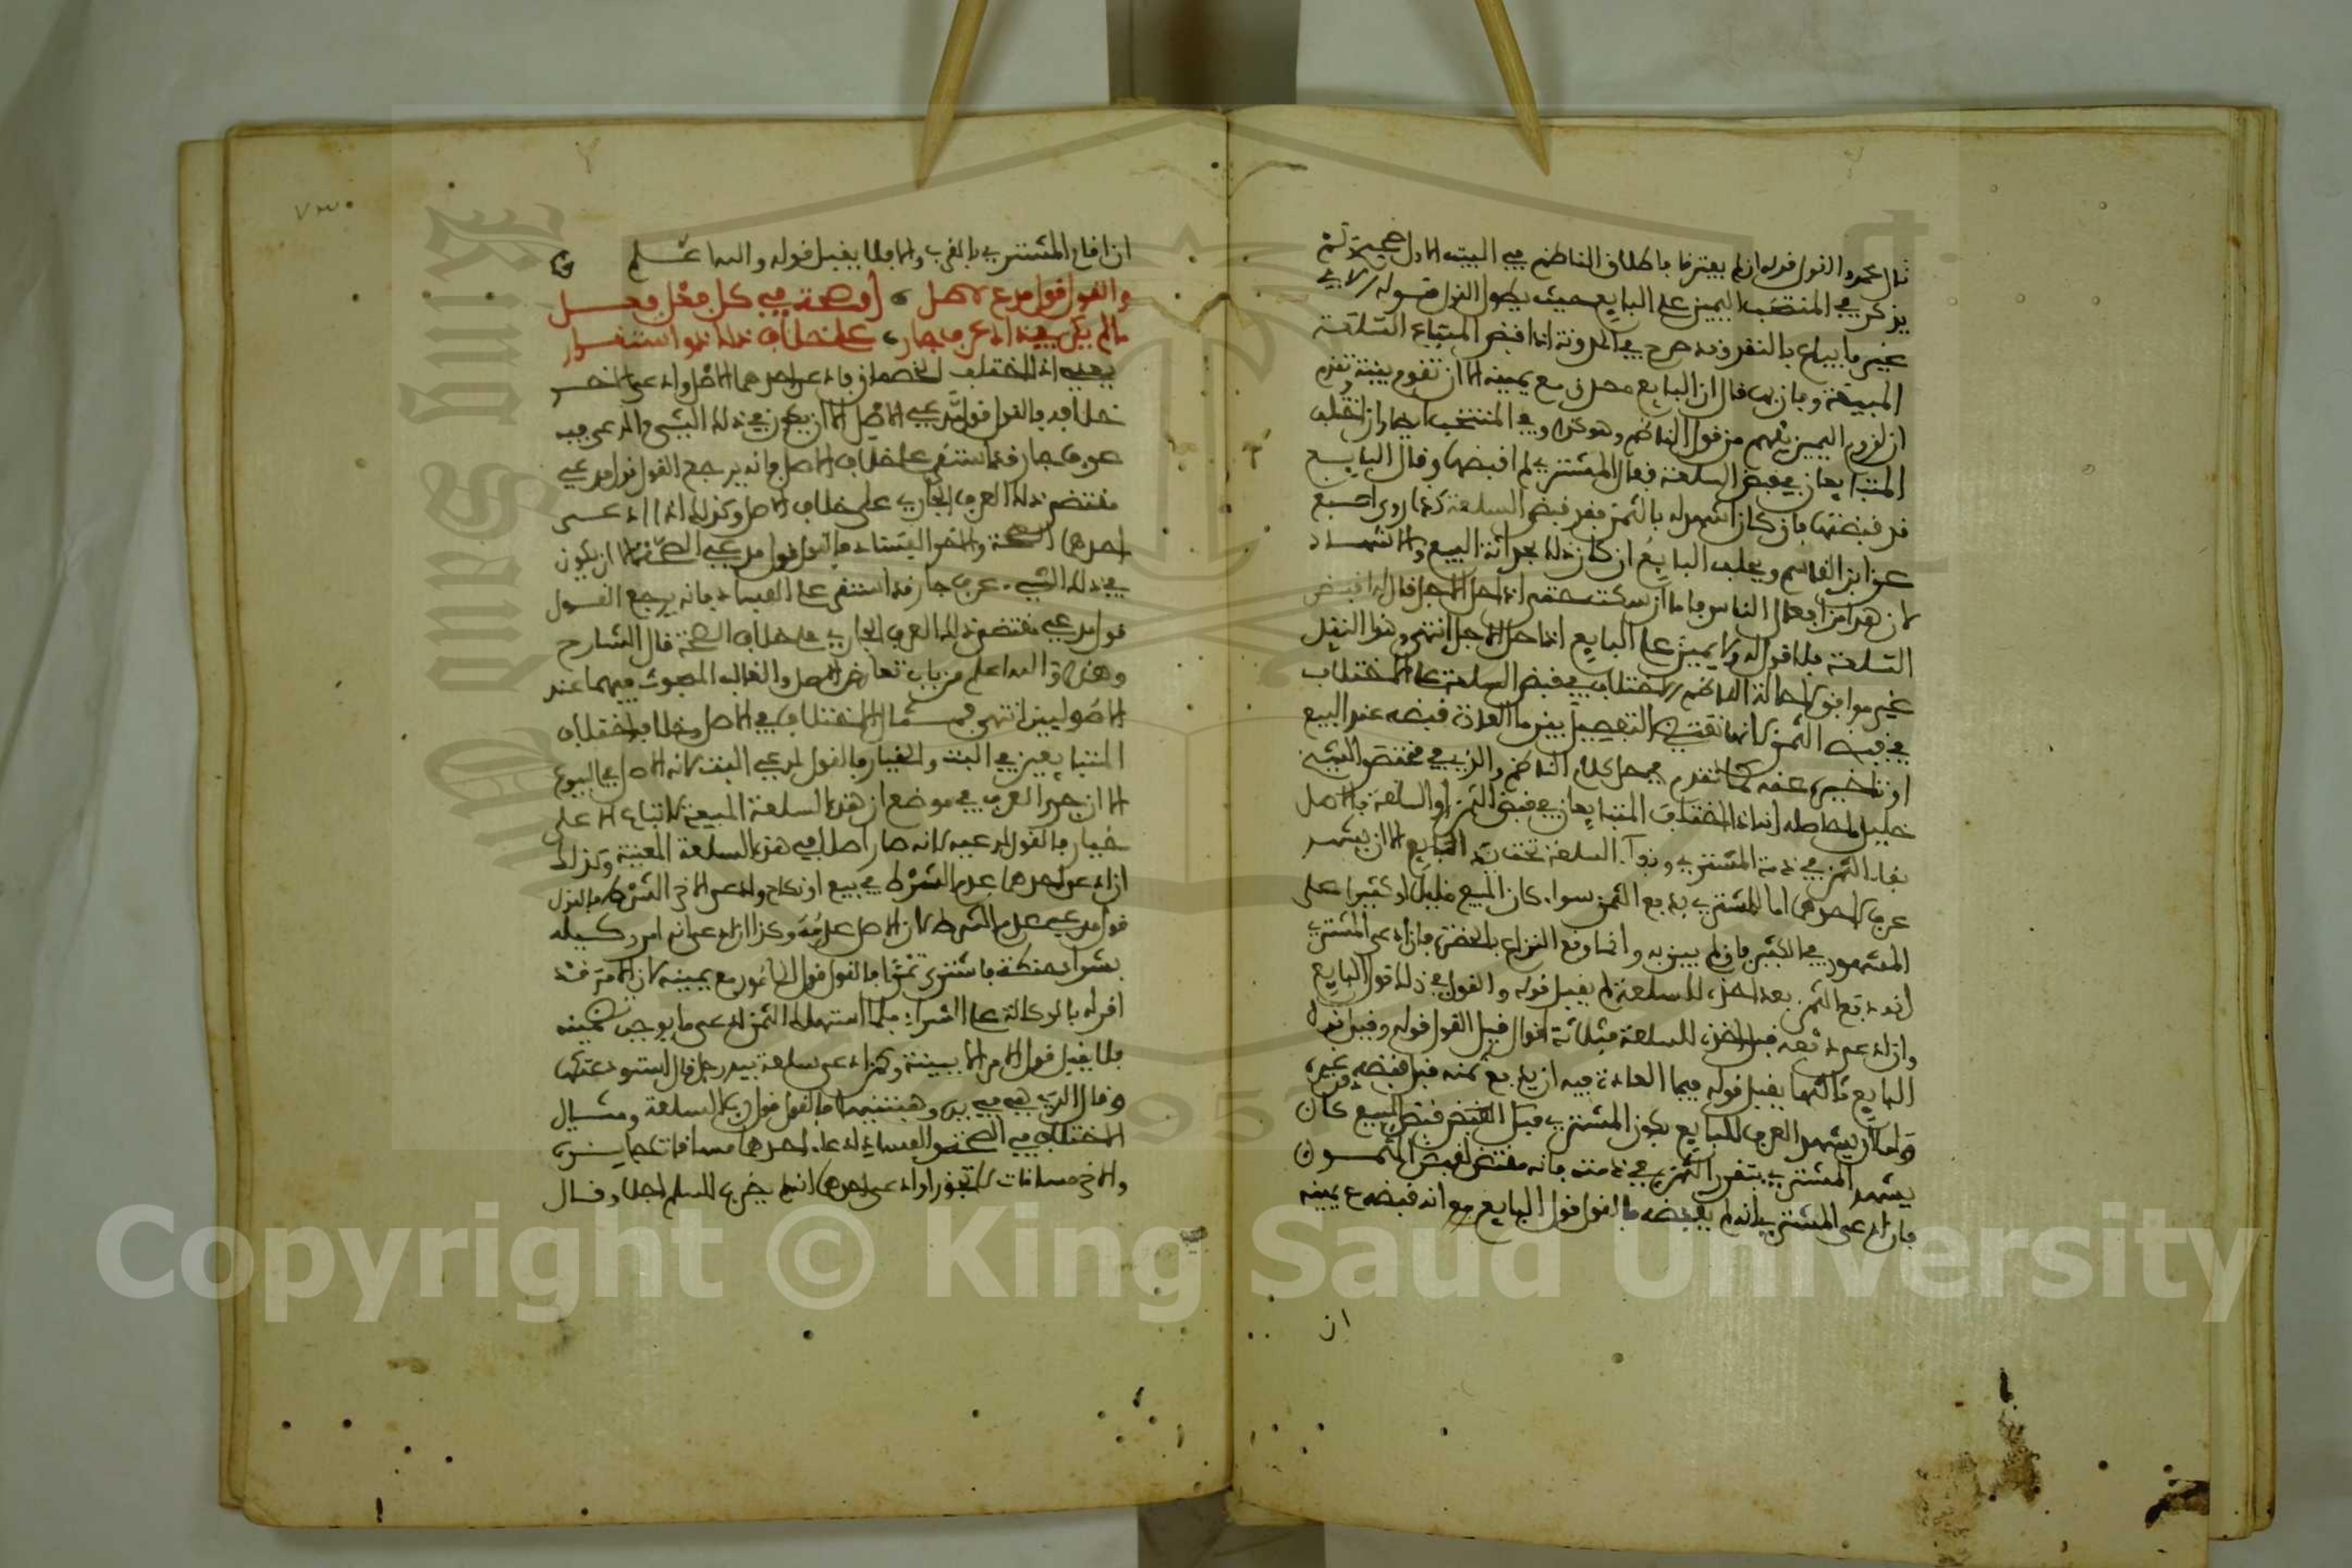 يذكر في المنتخب اليمين على البايع حيث يكون القول قوله لا في
غير ما يباع بالنقد وقد صرح في المدونة اذا قبض المبتاع السلعة
المبيعة وبان بها قال ان البايع مصدق مع يمينه الا ان تقوم بينة
ان لزوم اليمين يفهم من قول الناظم وهو كذلك وفي المنتخب ايضا وان اختلف
المتبايعان في قبض السلعة فقال المشتري لم اقبضها وقال البايع
قد قبضتها فان كان اشهد له بالثمن فقد قبض السلعة كذا روى اصبغ
عن ابن القاسم ويحلف البايع ان كان ذلك بحداثة البيع والاشهاد
السلعة فلا قول له ولا يمين على البايع اذا حل الاجل انتهى وهذا النقل
غير موافق الناظم الاختلاف في قبض السلعة على الاختلاف
في قبض الثمن التفصيل بين ما العادة قبضه عند البيع
او تاخيره عنه كما تقدم كلام الناظم والذي في مختصر الشيخ
خليل ما حاصله انه اذا اختلف المتبايعان في قبض الثمن او السلعة فالاصل
بقاء الثمن في ذمة المشتري وبقاء السلعة تحت يد البايع الا ان يشهد
عرف لاحدهما اما المشتري بدفع الثمن سواء كان المبيع قليلا او كثيرا على
المشهور في الكثير فان لم يبن به وانما وقع النزاع بالحضرة فان ادعى المشتري
انه دفع الثمن بعد اخذه للسلعة لم يقبل قوله والقول في ذلك قول البايع
وان ادعى دفعه قبل اخذه للسلعة فثلاثة اقوال قيل القول قوله وقيل
البايع ثالثها يقبل قوله فيما العادة فيه ان يدفع ثمنه قبل قبضه
واما ان يشهد العرف للبايع بكون المشتري قبض المبيع كان
يشهد المشتري بتقرر الثمن في ذمته فانه مقتض لقبض المثمون
فان ادعى المشتري انه لم يقبضه فالقول قول البايع انه قبضه مع يمينه
ان
٧٣
ان اقام المشتري بالقرب والا فلا يقبل قوله والله اعلم
والقول قول مدع للاصل او صحة في كل فعل فعل
ما لم يكن في ذاك عرف جار على خلاف ذلك ذو استقرار
يعني اذا اختلف الخصمان فادعى احدهما الاصل وادعى الاخر
خلافه فالقول قول مدعي الاصل الا ان يكون في ذلك الشيء المدعى فيه
عرف جار قد استقر على خلاف الاصل فانه يرجع القول قول مدعي
مقتضى ذلك العرف الجاري على خلاف الاصل وكذلك اذا ادعى
احدهما الصحة والاخر الفساد فالقول قول مدعي الصحة الا ان يكون
في ذلك الشيء عرف جار قد استقر على الفساد فانه يرجع القول
قول مدعي مقتضى ذلك العرف الجاري على خلاف الصحة قال الشارح
وهذا والله اعلم من باب تعارض الاصل والغالب المبحوث فيهما عند
الاصوليين انتهى فمثال الاختلاف في الاصل وخلافه اختلاف
المتبايعين في البت والخيار فالقول لمدعي البت لانه الاصل في البيوع
الا ان جرى العرف في موضع ان هذه السلعة المبيعة لا تباع الا على
خيار فالقول لمدعيه لانه صار اصلا في هذه السلعة المعينة وكذلك
ان ادعى احدهما عدم الشرط في بيع او نكاح وادعى الاخر الشرط فالقول
قول مدعي عدم الشرط لان الاصل عدمه وكذا ان ادعى انه امر وكيله
بشراء حنطة فاشترى تمرا فالقول قول المامور مع يمينه لان الآمر قد
اقر له بالوكالة على الشراء فلما استهلك الثمن ادعى ما يوجب ضمينه
فلا يقبل قول الآمر الا ببينة وكمن ادعى سلعة بيد رجل قال استودعتكها
وقال الذي هي في يده وهبتنيها فالقول قول رب السلعة ومثال
الاختلاف في الصحة والفساد ادعاء احدهما مساقاة جايزة
والاخر مساقاة لا تجوز او ادعى احدهما انه لم يضرب للسلم اجلا وقال